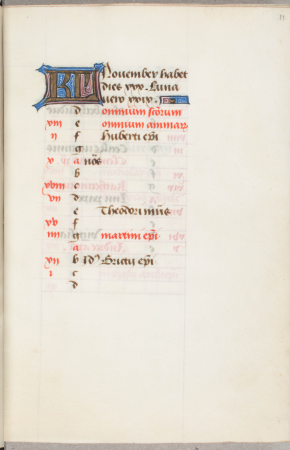 KL Nouember habet
dies xxx. Luna
vero xxix.
d omnium sctorum
xiii e omnium animarum
ii f Huberti epi
g
x a nos
b
xviii c
vii d
e Theodri mris
xv f
iiii g martini epi
a
xii b Id9 Brictii epi
i c
d